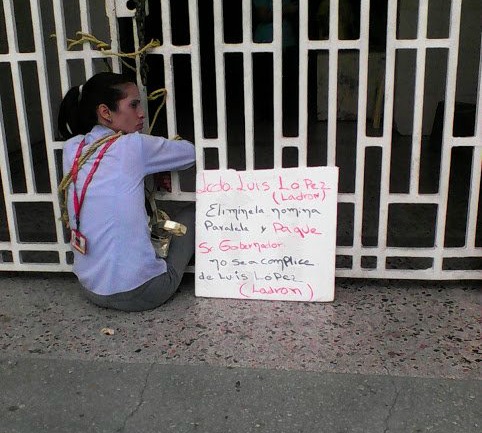 Lcdo Luis LoPez
(Ladron)
Eliminela nomina
Paralela y Pague
Sr. Gobernador
no sea complice
de Luis LoPez
(Ladron)